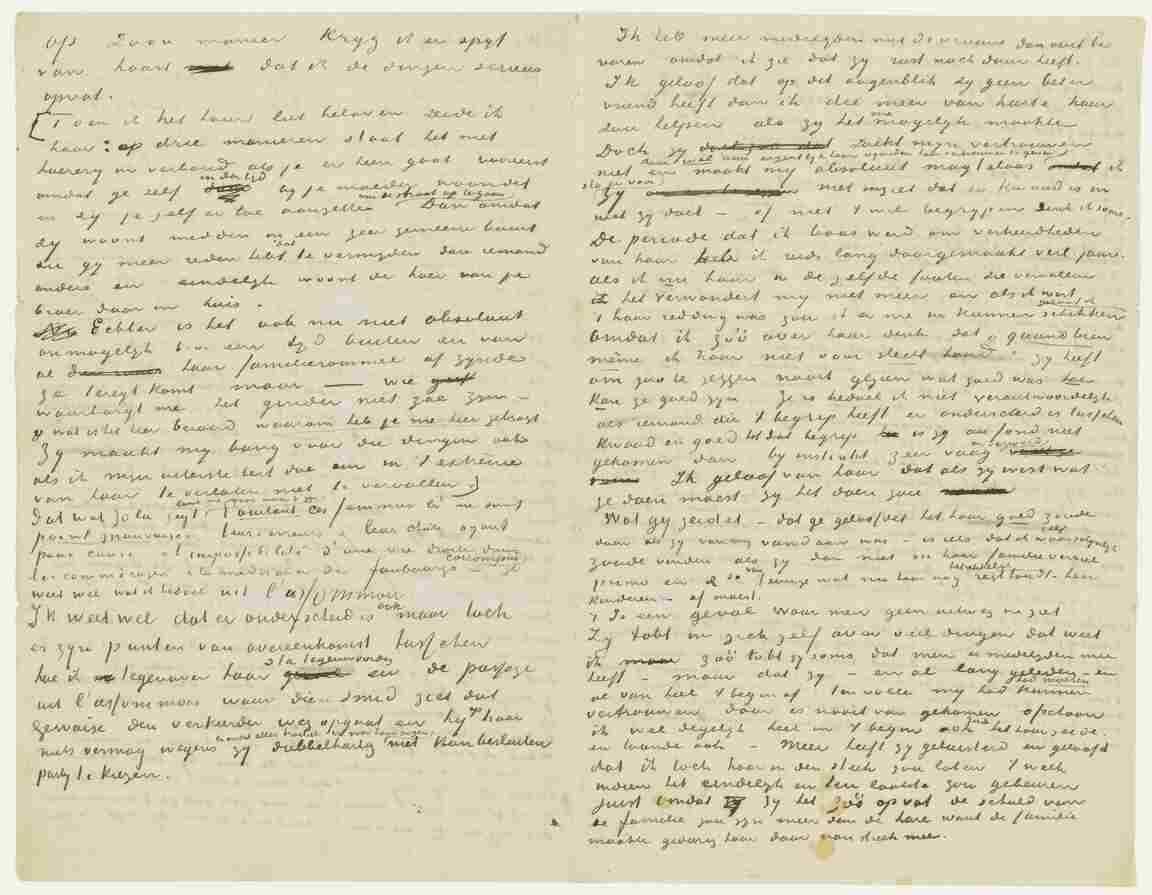 op zoon manier kryg ik er spyt
van haast dat ik de dingen serieus
opvat.
[Toen ik het haar liet beloven zeide ik
haar: op drie manieren staat het met
hoerery in verband als je er heen gaat vooreerst
omdat ge zelf indertyd by je moeder woondet
en zy je zelf er toe aanzette om de straat op te gaan Dan omdat
zy woont midden in een zeer gemeene buurt
die gy meer reden hebt dat te vermyden dan iemand
anders en eindelyk woont de hoer van je
broer daar in huis.
Echter is het ook nu niet absoluut
onmogelyk b.v. een tyd buiten en van
al haar familierommel af zynde
ze teregt komt maar — wie
waarborgt me het ginder niet zoo zyn —
wat is het hier beroerd, waarom heb je me hier gebragt
Zy maakt my bang voor die dingen ook
als ik myn uiterste best doe om in 't extrème
van haar te verlaten niet te vervallen.]
Dat wat Zola zegt, toutes ces femmes là ne sont
point mauvaises leurs erreurs & leur chûte ayant
pour cause l'impossibilité d'une vie droite dans
les commérages les médisances des faubourgs corrompus — ge
weet wel wat ik bedoel uit l'assommoir
Ik weet wel dat er onderscheid is ook maar toch
er zyn punten van overeenkomst tusschen
hoe ik tegenover haar sta tegenwoordig en de passage
uit l'assommoir waar die smid ziet dat
Gervaise den verkeerden weg opgaat en hy op haar
niets vermag wegens zy dubbelhartig niet kan besluiten
party te kiezen.
Ik heb meer medelyden met de vrouw dan ooit te
voren omdat ik zie dat zy rust noch duur heeft.
Ik geloof dat op dit oogenblik zy geen beter
vriend heeft dan ik die meer van harte haar
zou helpen als zy het me mogelyk maakte
Doch zy zoekt myn vertrouwen
niet en maakt my absoluut magteloos
niet inziet dat er kwaad is in
wat zy doet — of niet 't wil begrypen denk ik soms.
De periode dat ik boos werd om verkeerdheden
van haar heb ik reeds lang doorgemaakt verl. jaar.
als ik nu haar in de zelfde fouten zie vervallen
het verwondert my niet meer en als ik wist
't haar redding was zou ik er me in kunnen schikken
omdat ik zoo over haar denk dat „quand bien
même ik haar niet voor slecht houd”. Zy heeft
om zoo te zeggen nooit gezien wat goed was hoe
kan ze goed zyn. Ze is bedoel ik niet verantwoordelyk
als iemand die 't begrip heeft er onderscheid is tusschen
kwaad en goed tot dat begrip is zy au fond niet
gekomen dan by instinkt zeer vaag en verward
Ik geloof van haar dat als zy wist wat
ze doen moest zy het doen zou
Wat gy zeidet — dat ge geloofdet het haar goed zoude
doen als zy van my vandaan was — is iets dat ik zelf waarschynlyk
zoude vinden als zy dan niet in haar familie verviel
primo en 2de van 't eenige wat nu haar nog behoudelyk regt houdt — haar
kinderen — af moest.
't Is een geval waar men geen uitweg in ziet
Zy tobt in zich zelf over veel dingen dat weet
ik zoo tobt zy soms dat men er medelyden mee
heeft — maar dat zy — en al lang geleden — en
al van heel 't begin af ten volle my had moeten kunnen
vertrouwen daar is nooit van gekomen ofschoon
ik wel degelyk heel in 't begin ook het haar zeide.
en toonde ook — Meer heeft zy geluisterd en geloofd
dat ik toch haar in den steek zou laten 't welk
indien het eindelyk en ten laatste zou gebeuren
juist omdat zy het zoo opvat de schuld van
de familie zou zyn meer dan de hare want de familie
maakte gedurig haar daar van streek mee.